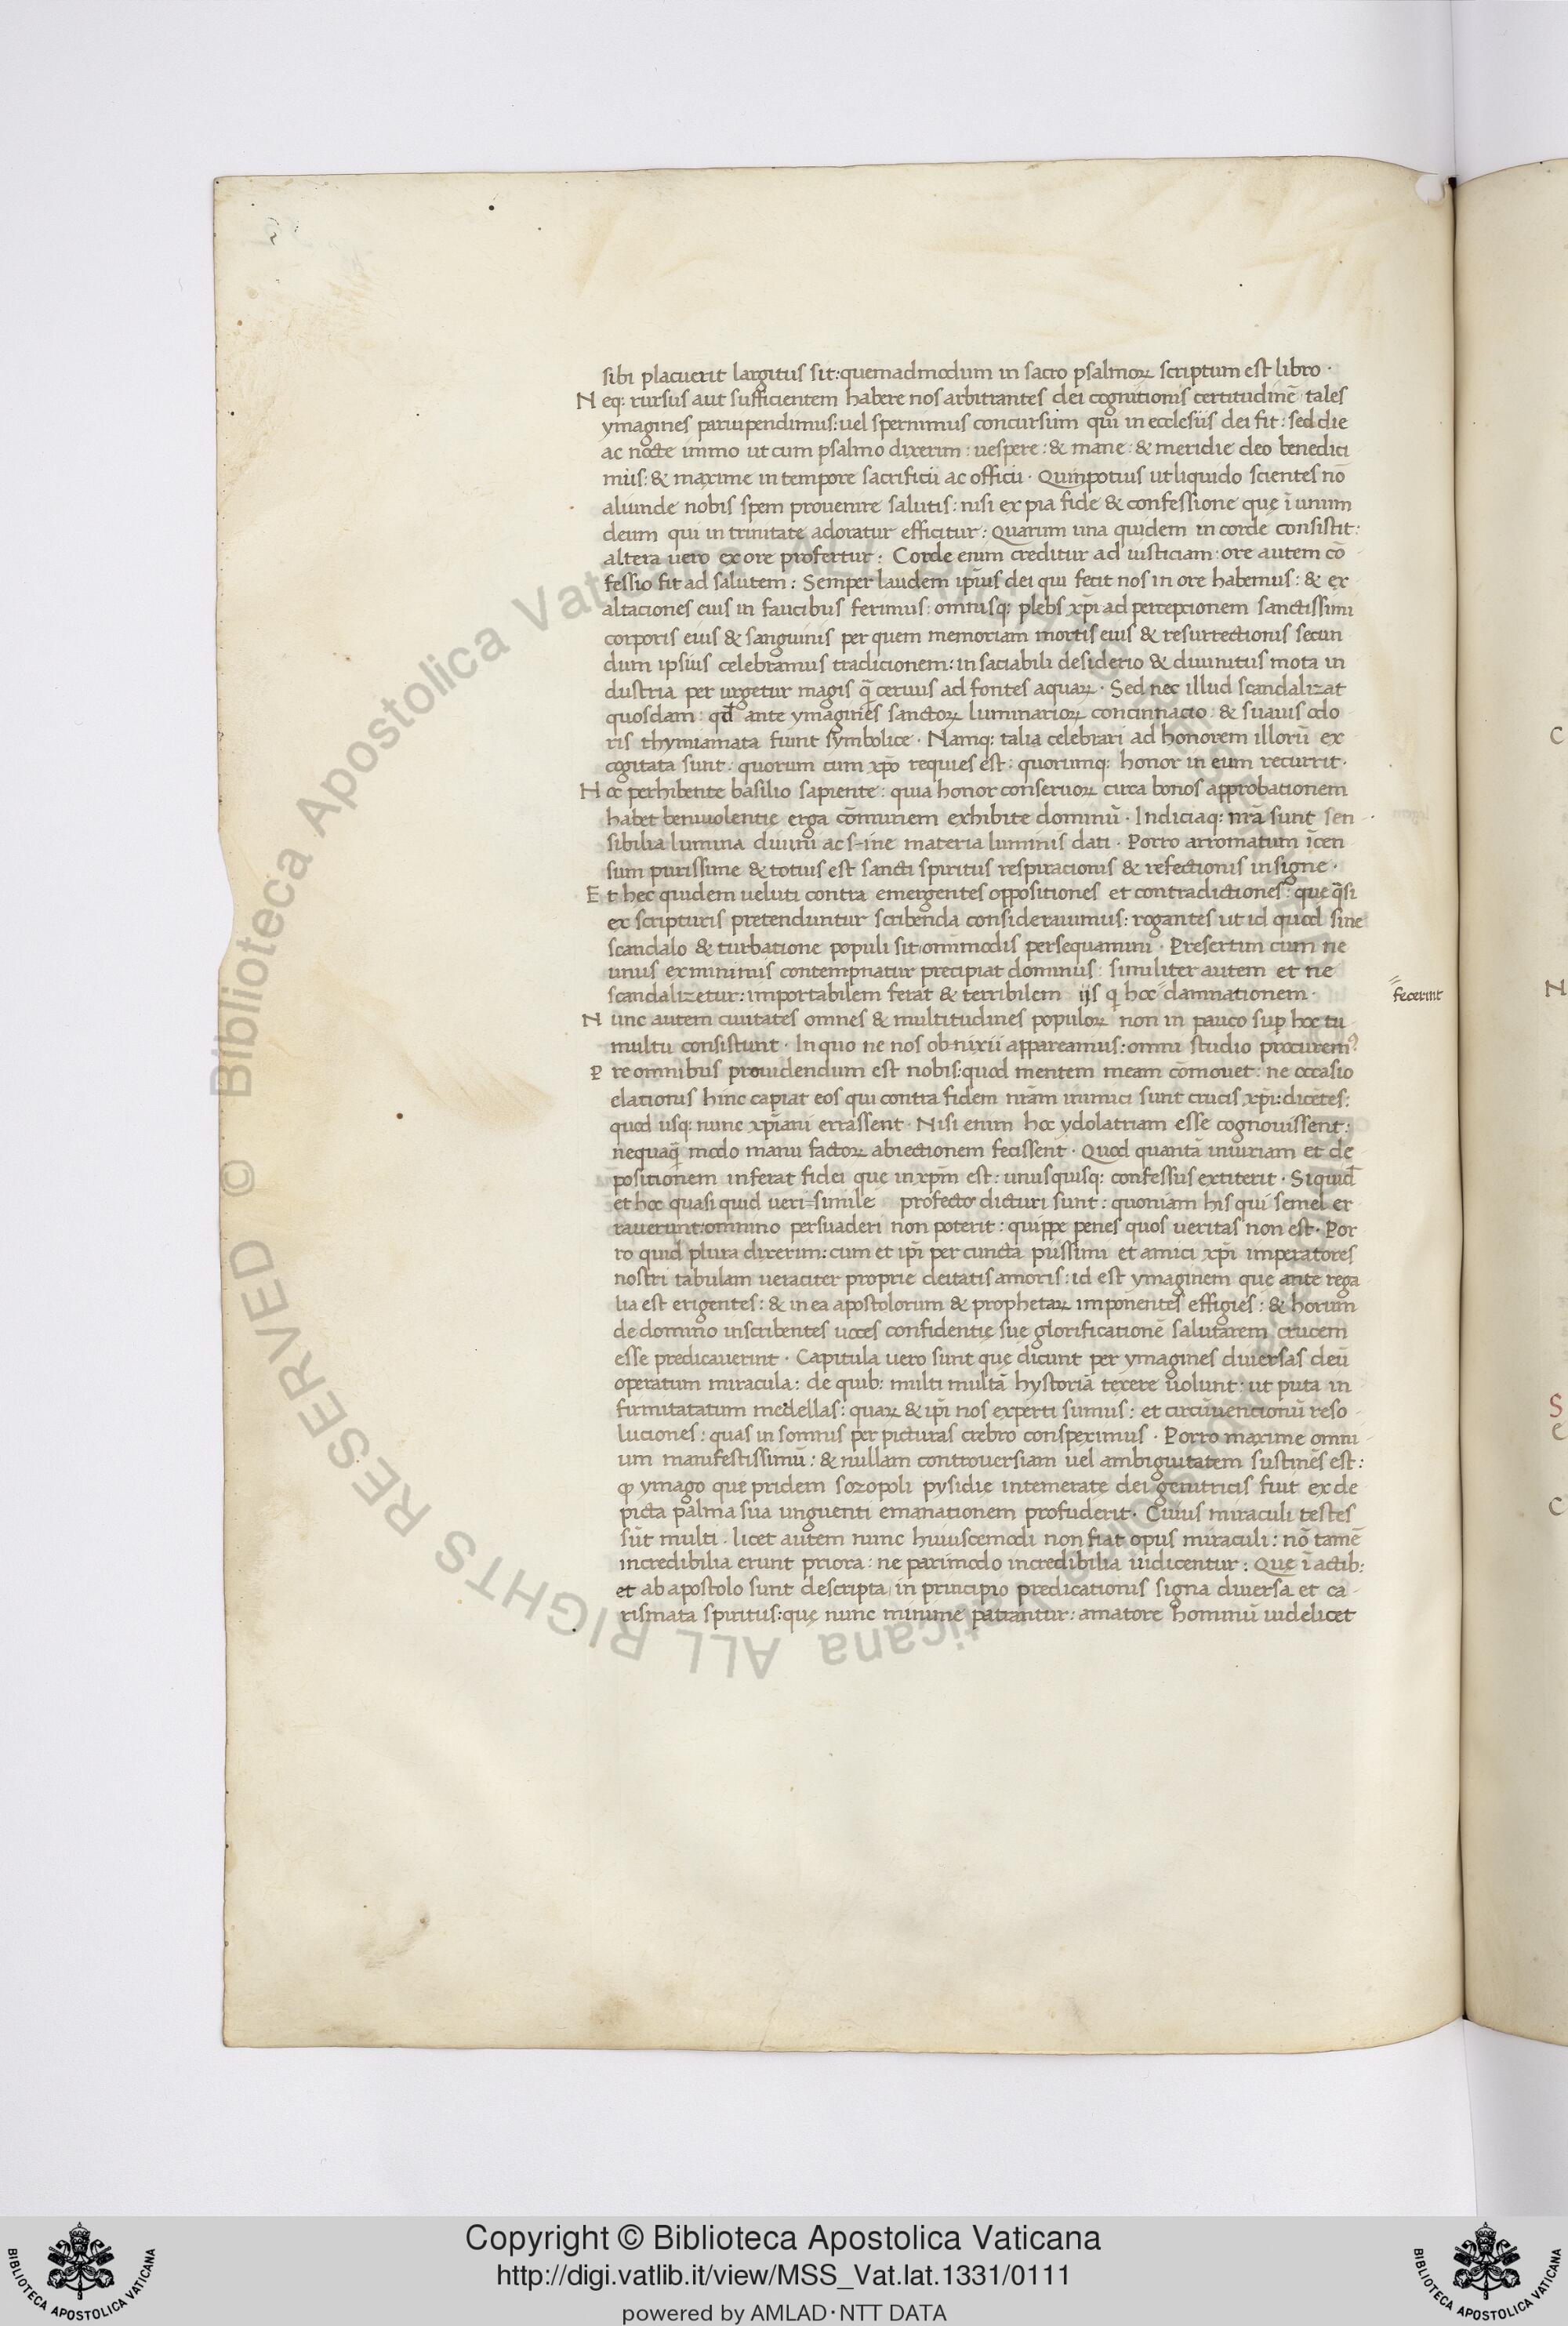 sibi placuerit largitus sit: quemadmodum in sacro psalmoꝝ scriptum est libro ·
N eq: rursus aut sufficientem habere nos arbitrantes dei cognitionis certitudinē tales
ymagines paruipendimus: uel spernimus concursum qui in ecclesiis dei fit: sed die
ac nocte immo ut cum psalmo dixerim: uespere: & mane: & meridie deo benedici
mus: & maxime in tempore sacrificii ac officii · Quinpotius ut liquido scientes nō
aliunde nobis spem prouenire salutis: nisi ex pia fide & confessione que ī unum
deum qui in trinitate adoratur efficitur: Quarum una quidem in corde consistit:
altera uero ex ore profertur: Corde enim creditur ad iusticiam: ore autem cō
fessio fit ad salutem: Semper laudem ip̄ius dei qui fecit nos in ore habemus: & ex
altaciones eius in faucibus ferimus: omnisq: plebs xp̄i ad percepcionem sanctissimi
corporis eius & sanguinis per quem memoriam mortis eius & resurrectionis secun
dum ipsius celebramus tradicionem: insaciabili desiderio & diuinitus mota in
dustria per urgetur magis q̄ ceruus ad fontes aquaꝝ · Sed nec illud scandalizat
quosdam: qd̄ ante ymagines sanctoꝝ luminarioꝝ concinnacio: & suauis odo
ris thymiamata fiunt symbolice · Namq: talia celebrari ad honorem illorū ex
cogitata sunt: quorum cum xp̄o requies est: quorumq: honor in eum recurrit ·
H oc perhibente basilio sapiente: quia honor conseruoꝝ circa bonos approbationem
habet beniuolentie erga cōmunem exhibite dominū · Indiciaq: nr̄a sunt sen
sibilia lumina diuini ac s-ine materia luminis dati · Porro arromatum īcen
sum purissime & totius est sancti spiritus respiracionis & refectionis insigne ·
E t hec quidem ueluti contra emergentes oppositiones et contradictiones: que q̄si
ex scripturis pretenduntur scribenda considerauimus: rogantes ut id quod sine
scandalo & turbatione populi sit omnimodis persequamini · Presertim cum ne
unus ex minimis contempnatur precipiat dominus: similiter autem et ne
scandalizetur: importabilem ferat & terribilem ijs q hoc damnationem ·
fecerint
N unc autem ciuitates omnes & multitudines populoꝝ non in pauco sup hoc tu
multu consistunt · In quo ne nos ob-nixii appareamus: omni studio procurem⁹
P re omnibus prouidendum est nobis: quod mentem meam cōmouet: ne occasio
elationis hinc capiat eos qui contra fidem nr̄am inimici sunt crucis xp̄i: dicētes:
quod usq: nunc xp̄iani errassent · Nisi enim hoc ydolatriam esse cognouissent:
nequaq̄ modo manu factoꝝ abiectionem fecissent · Quod quantā iniuriam et de
positionem inferat fidei que in xp̄m est: unusquisq: confessus extiterit · Siquid
et hoc quasi quid ueri-simile profecto dicturi sunt: quoniam his qui semel er
rauerunt: omnino persuaderi non poterit: quippe penes quos ueritas non est · Por
ro quid plura dixerim: cum et ip̄i per cuncta piissimi et amici xp̄i imperatores
nostri tabulam ueraciter proprie deitatis amoris: id est ymaginem que ante rega
lia est erigentes: & in ea apostolorum & prophetaꝝ imponentes effigies: & horum
de domino inscribentes uoces confidentie sue glorificationē salutarem crucem
esse predicauerint · Capitula uero sunt que dicunt per ymagines diuersas deū
operatum miracula: de quib: multi multā hystoriā texere uolunt: ut puta in
firmitatatum medellas: quaꝝ & ip̄i nos experti sumus: et circūuencionū reso
luciones: quas in somnis per picturas crebro conspeximus · Porro maxime omni
um manifestissimū: & nullam controuersiam uel ambiguitatem sustinēs est:
ꝙ ymago que pridem sozopoli pysidie intemerate dei genitricis fuit ex de
picta palma sua unguenti emanationem profuderit · Cuius miraculi testes
sūt multi · licet autem nunc huiuscemodi non fiat opus miraculi: nō tamē
incredibilia erunt priora: ne parimodo incredibilia iudicentur: Que ī actib:
et ab apostolo sunt descripta in principio predicationis signa diuersa et ca
rismata spiritus: que nunc minime patrantur: amatore hominū uidelicet
© Biblioteca Apostolica Vaticana ALL RIGHTS RESERVED
Copyright © Biblioteca Apostolica Vaticana
http://digi.vatlib.it/view/MSS_Vat.lat.1331/0111
powered by AMLAD·NTT DATA
BIBLIOTECA APOSTOLICA VATICANA
BIBLIOTECA APOSTOLICA VATICANA